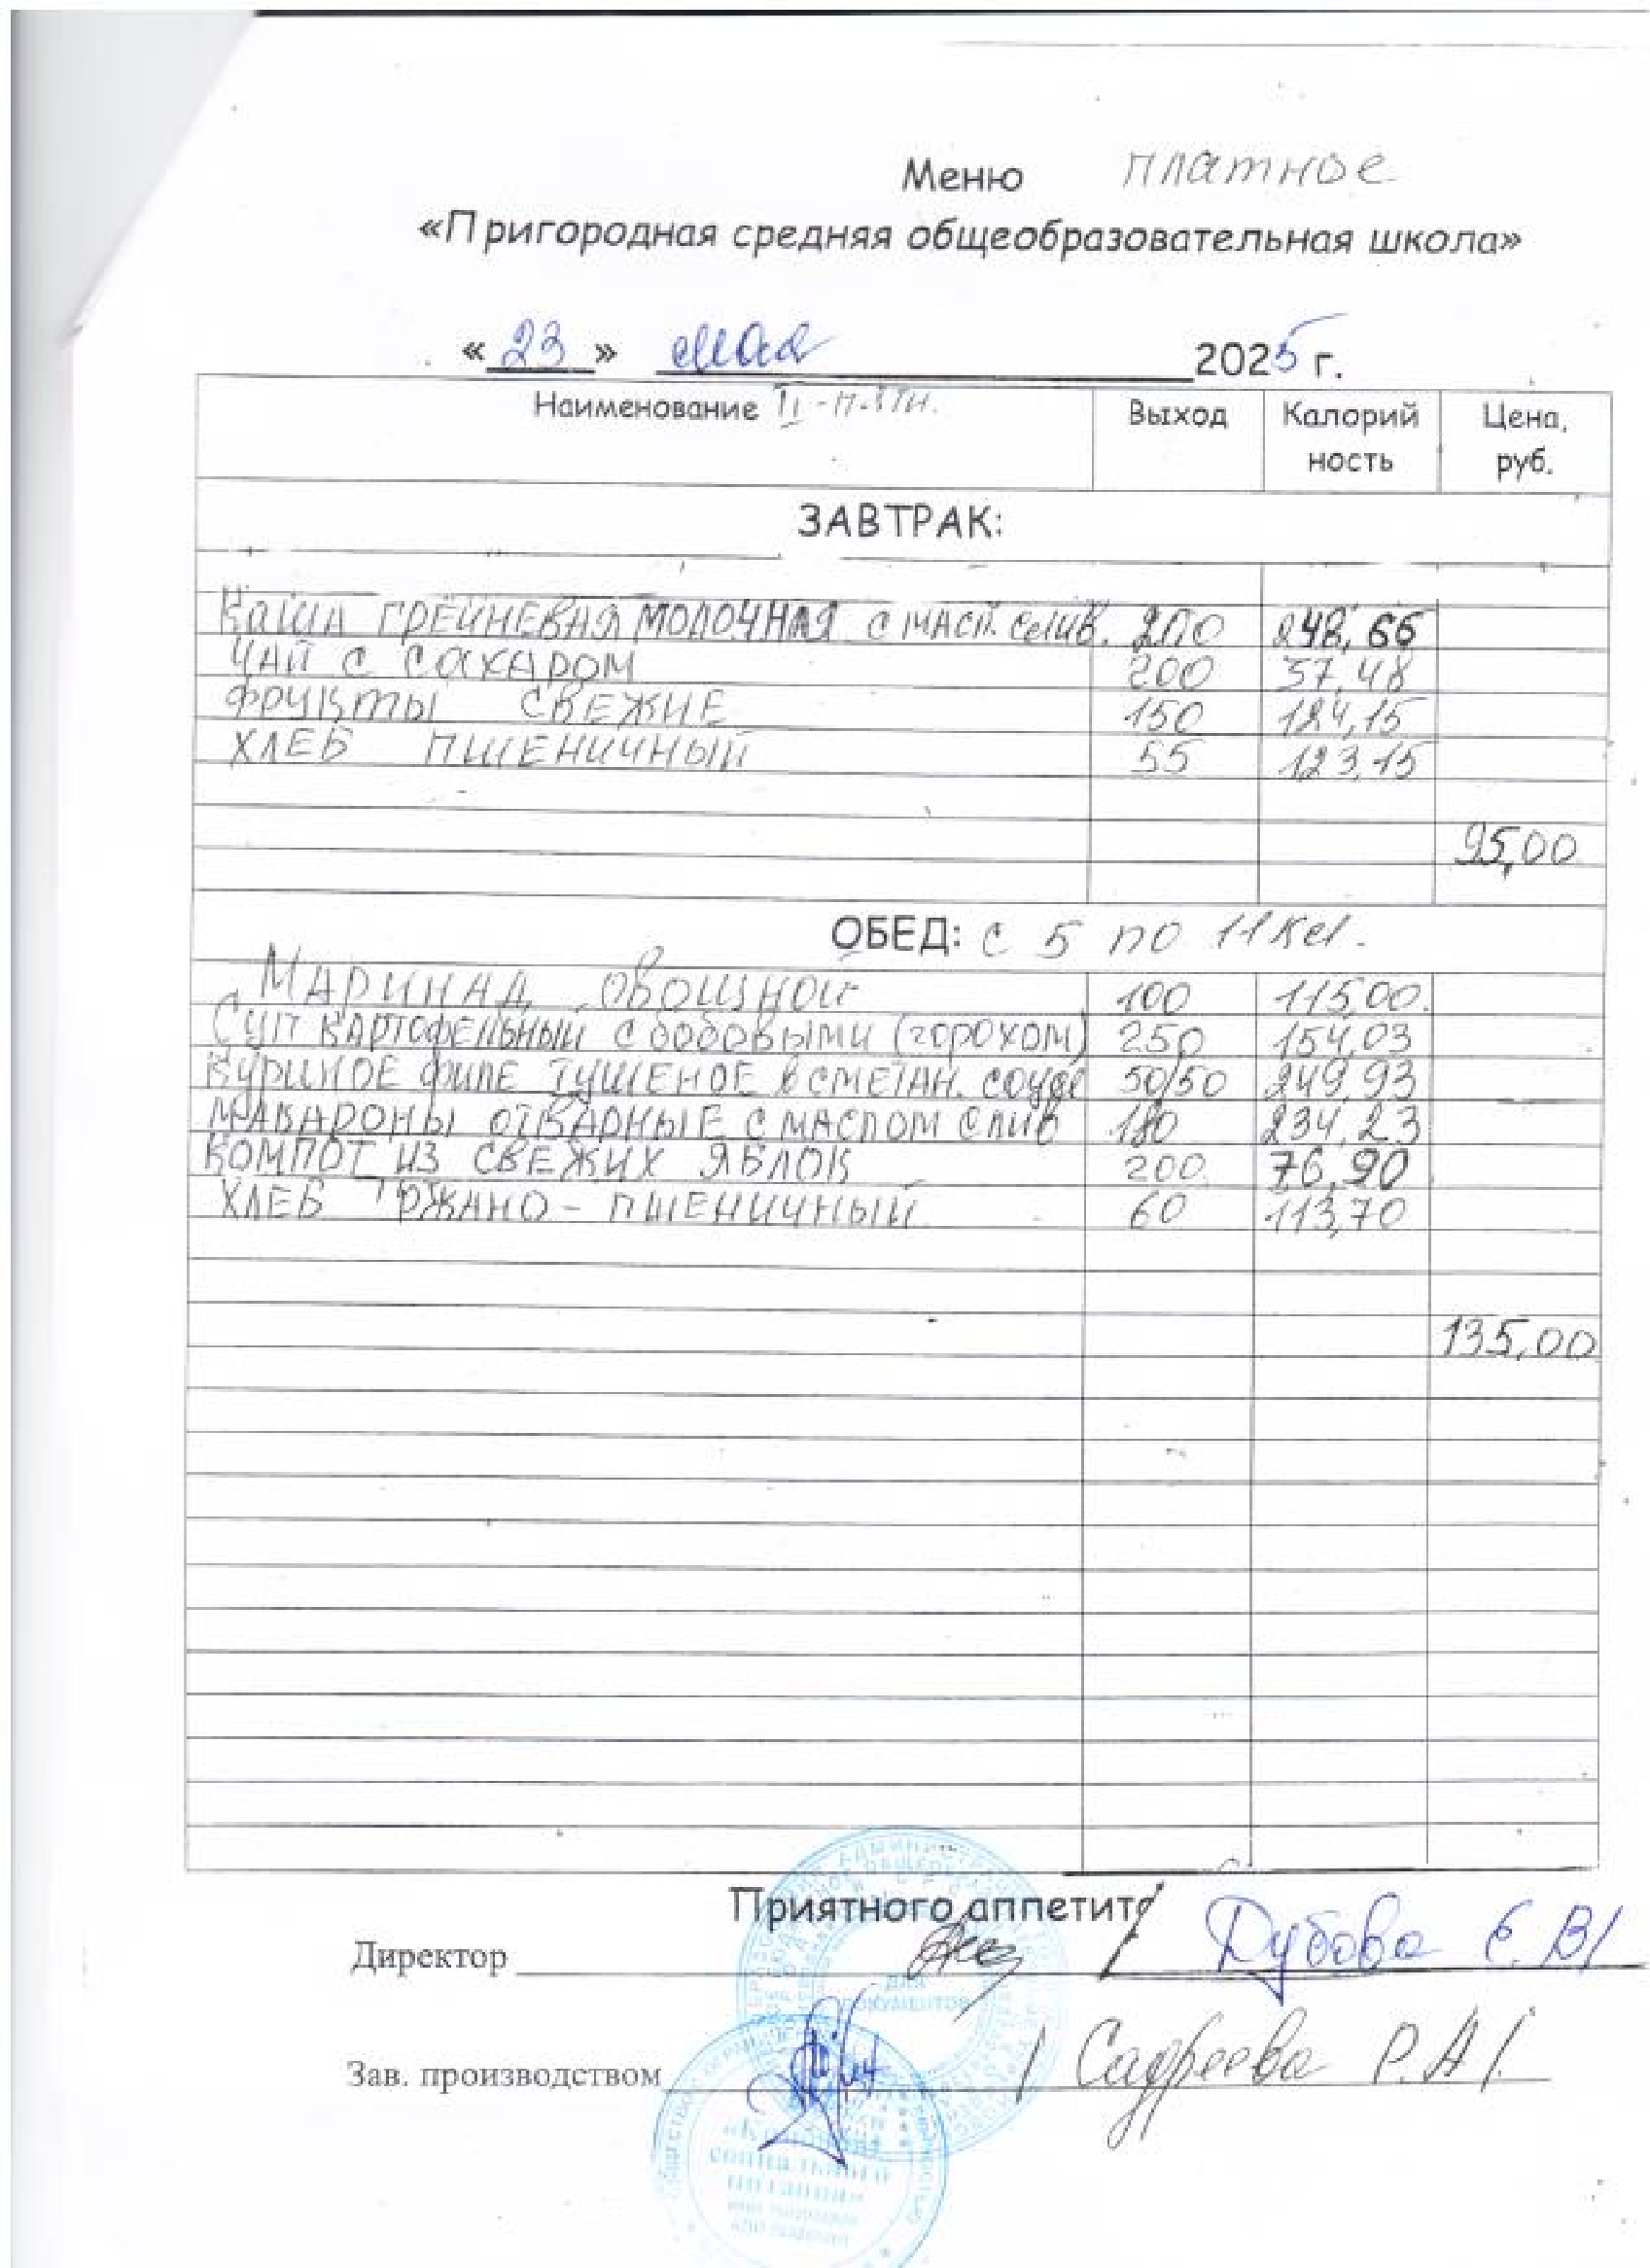 Меню платное
«Пригородная средняя общеобразовательная школа»
«23» мая 2025 г.
Наименование II-пятн. Выход Калорий Цена,
ность руб.
ЗАВТРАК:
КАША ГРЕЧНЕВАЯ МОЛОЧНАЯ С МАСЛ. СЛИВ. 200 248,66
ЧАЙ С САХАРОМ 200 57,48
ФРУКТЫ СВЕЖИЕ 150 124,15
ХЛЕБ ПШЕНИЧНЫЙ 55 123,15
95,00
ОБЕД: с 5 по 11 кл.
МАРИНАД ОВОЩНОЙ 100 115,00
СУП КАРТОФЕЛЬНЫЙ С бобовыми (горохом) 250 154,03
КУРИНОЕ ФИЛЕ ТУШЕНОЕ в СМЕТАН. СОУСЕ 50/50 249,93
МАКАРОНЫ ОТВАРНЫЕ С МАСЛОМ СЛИВ 180 234,23
КОМПОТ ИЗ СВЕЖИХ ЯБЛОК 200 76,90
ХЛЕБ РЖАНО-ПШЕНИЧНЫЙ 60 113,70
135,00
Приятного аппетита
Директор / Дубова Е.В/
Зав. производством / Садреева Р.А/.
ДЛЯ
ДОКУМЕНТОВ
социального
питания»